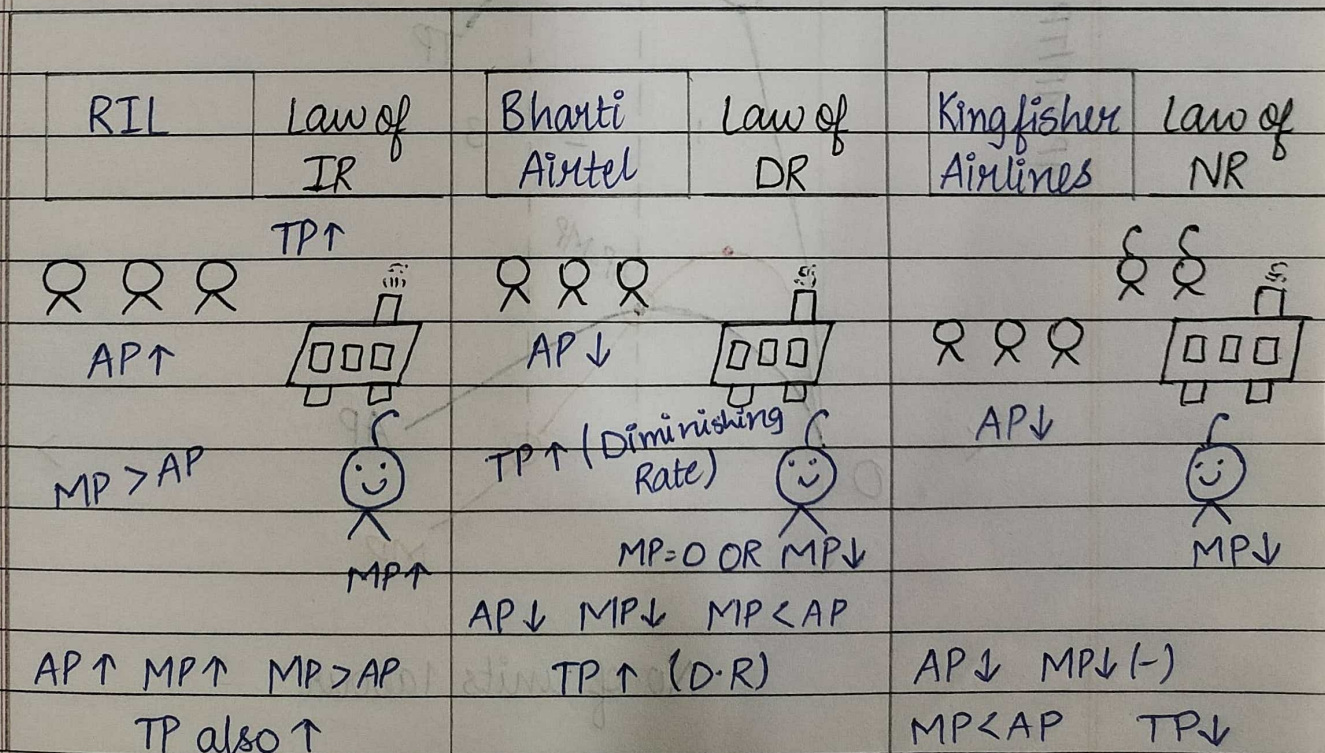 RIL
Law of
IR
TP↑
AP↑
MP > AP
MP↑
AP↑ MP↑ MP > AP
TP also ↑
Bharti
Airtel
Law of
DR
AP↓
TP↑ (Diminishing
Rate)
MP=0 OR MP↓
AP↓ MP↓ MP < AP
TP↑ (D.R)
Kingfisher
Airlines
Law of
NR
AP↓
MP↓
AP↓ MP↓ (-)
MP < AP TP↓